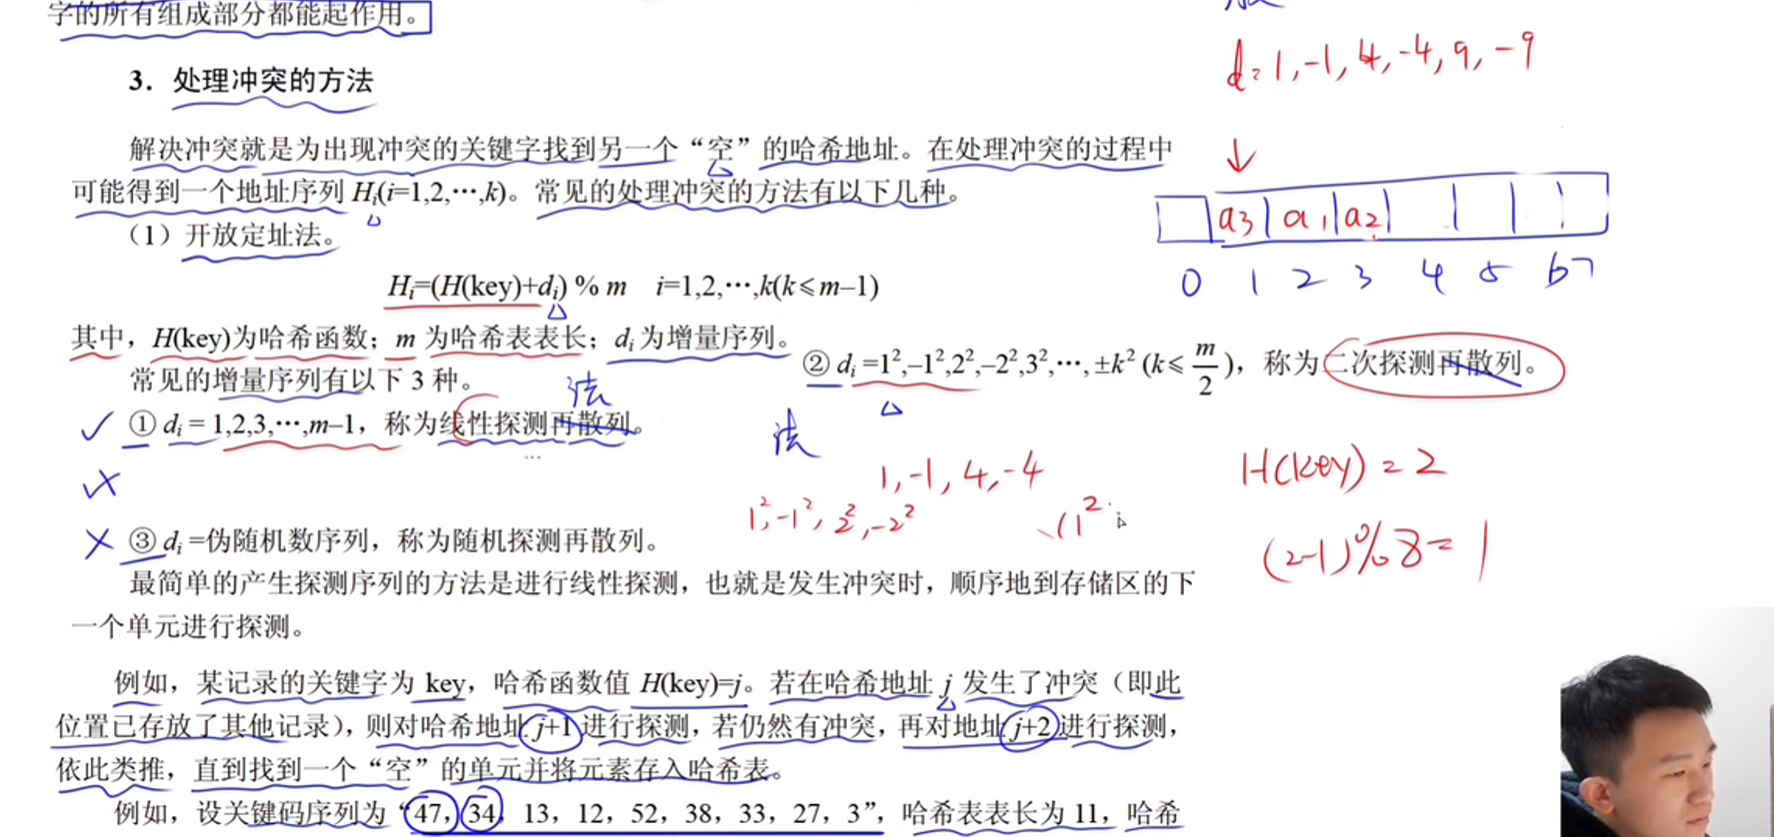 字的所有组成部分都能起作用。
d=1,-1,4,-4,9,-9
3．处理冲突的方法
解决冲突就是为出现冲突的关键字找到另一个“空”的哈希地址。在处理冲突的过程中
可能得到一个地址序列 Hᵢ(i=1,2,⋯,k)。常见的处理冲突的方法有以下几种。
a3 a1 a2
（1）开放定址法。
0 1 2 3 4 5 6 7
Hᵢ=(H(key)+dᵢ) % m i=1,2,⋯,k(k⩽m–1)
其中，H(key)为哈希函数；m 为哈希表表长；dᵢ为增量序列。
② dᵢ =1²,–1²,2²,–2²,3²,⋯,±k² (k⩽m/2)，称为二次探测再散列。
常见的增量序列有以下 3 种。
法
① dᵢ = 1,2,3,⋯,m–1，称为线性探测再散列。
法
1,-1,4,-4
H(key)=2
1²,-1²,2²,-2²
(1²
③ dᵢ =伪随机数序列，称为随机探测再散列。
(2-1)%8=1
最简单的产生探测序列的方法是进行线性探测，也就是发生冲突时，顺序地到存储区的下
一个单元进行探测。
例如，某记录的关键字为 key，哈希函数值 H(key)=j。若在哈希地址 j 发生了冲突（即此
位置已存放了其他记录），则对哈希地址 j+1 进行探测，若仍然有冲突，再对地址 j+2 进行探测，
依此类推，直到找到一个“空”的单元并将元素存入哈希表。
例如，设关键码序列为“47，34，13，12，52，38，33，27，3”，哈希表表长为 11，哈希